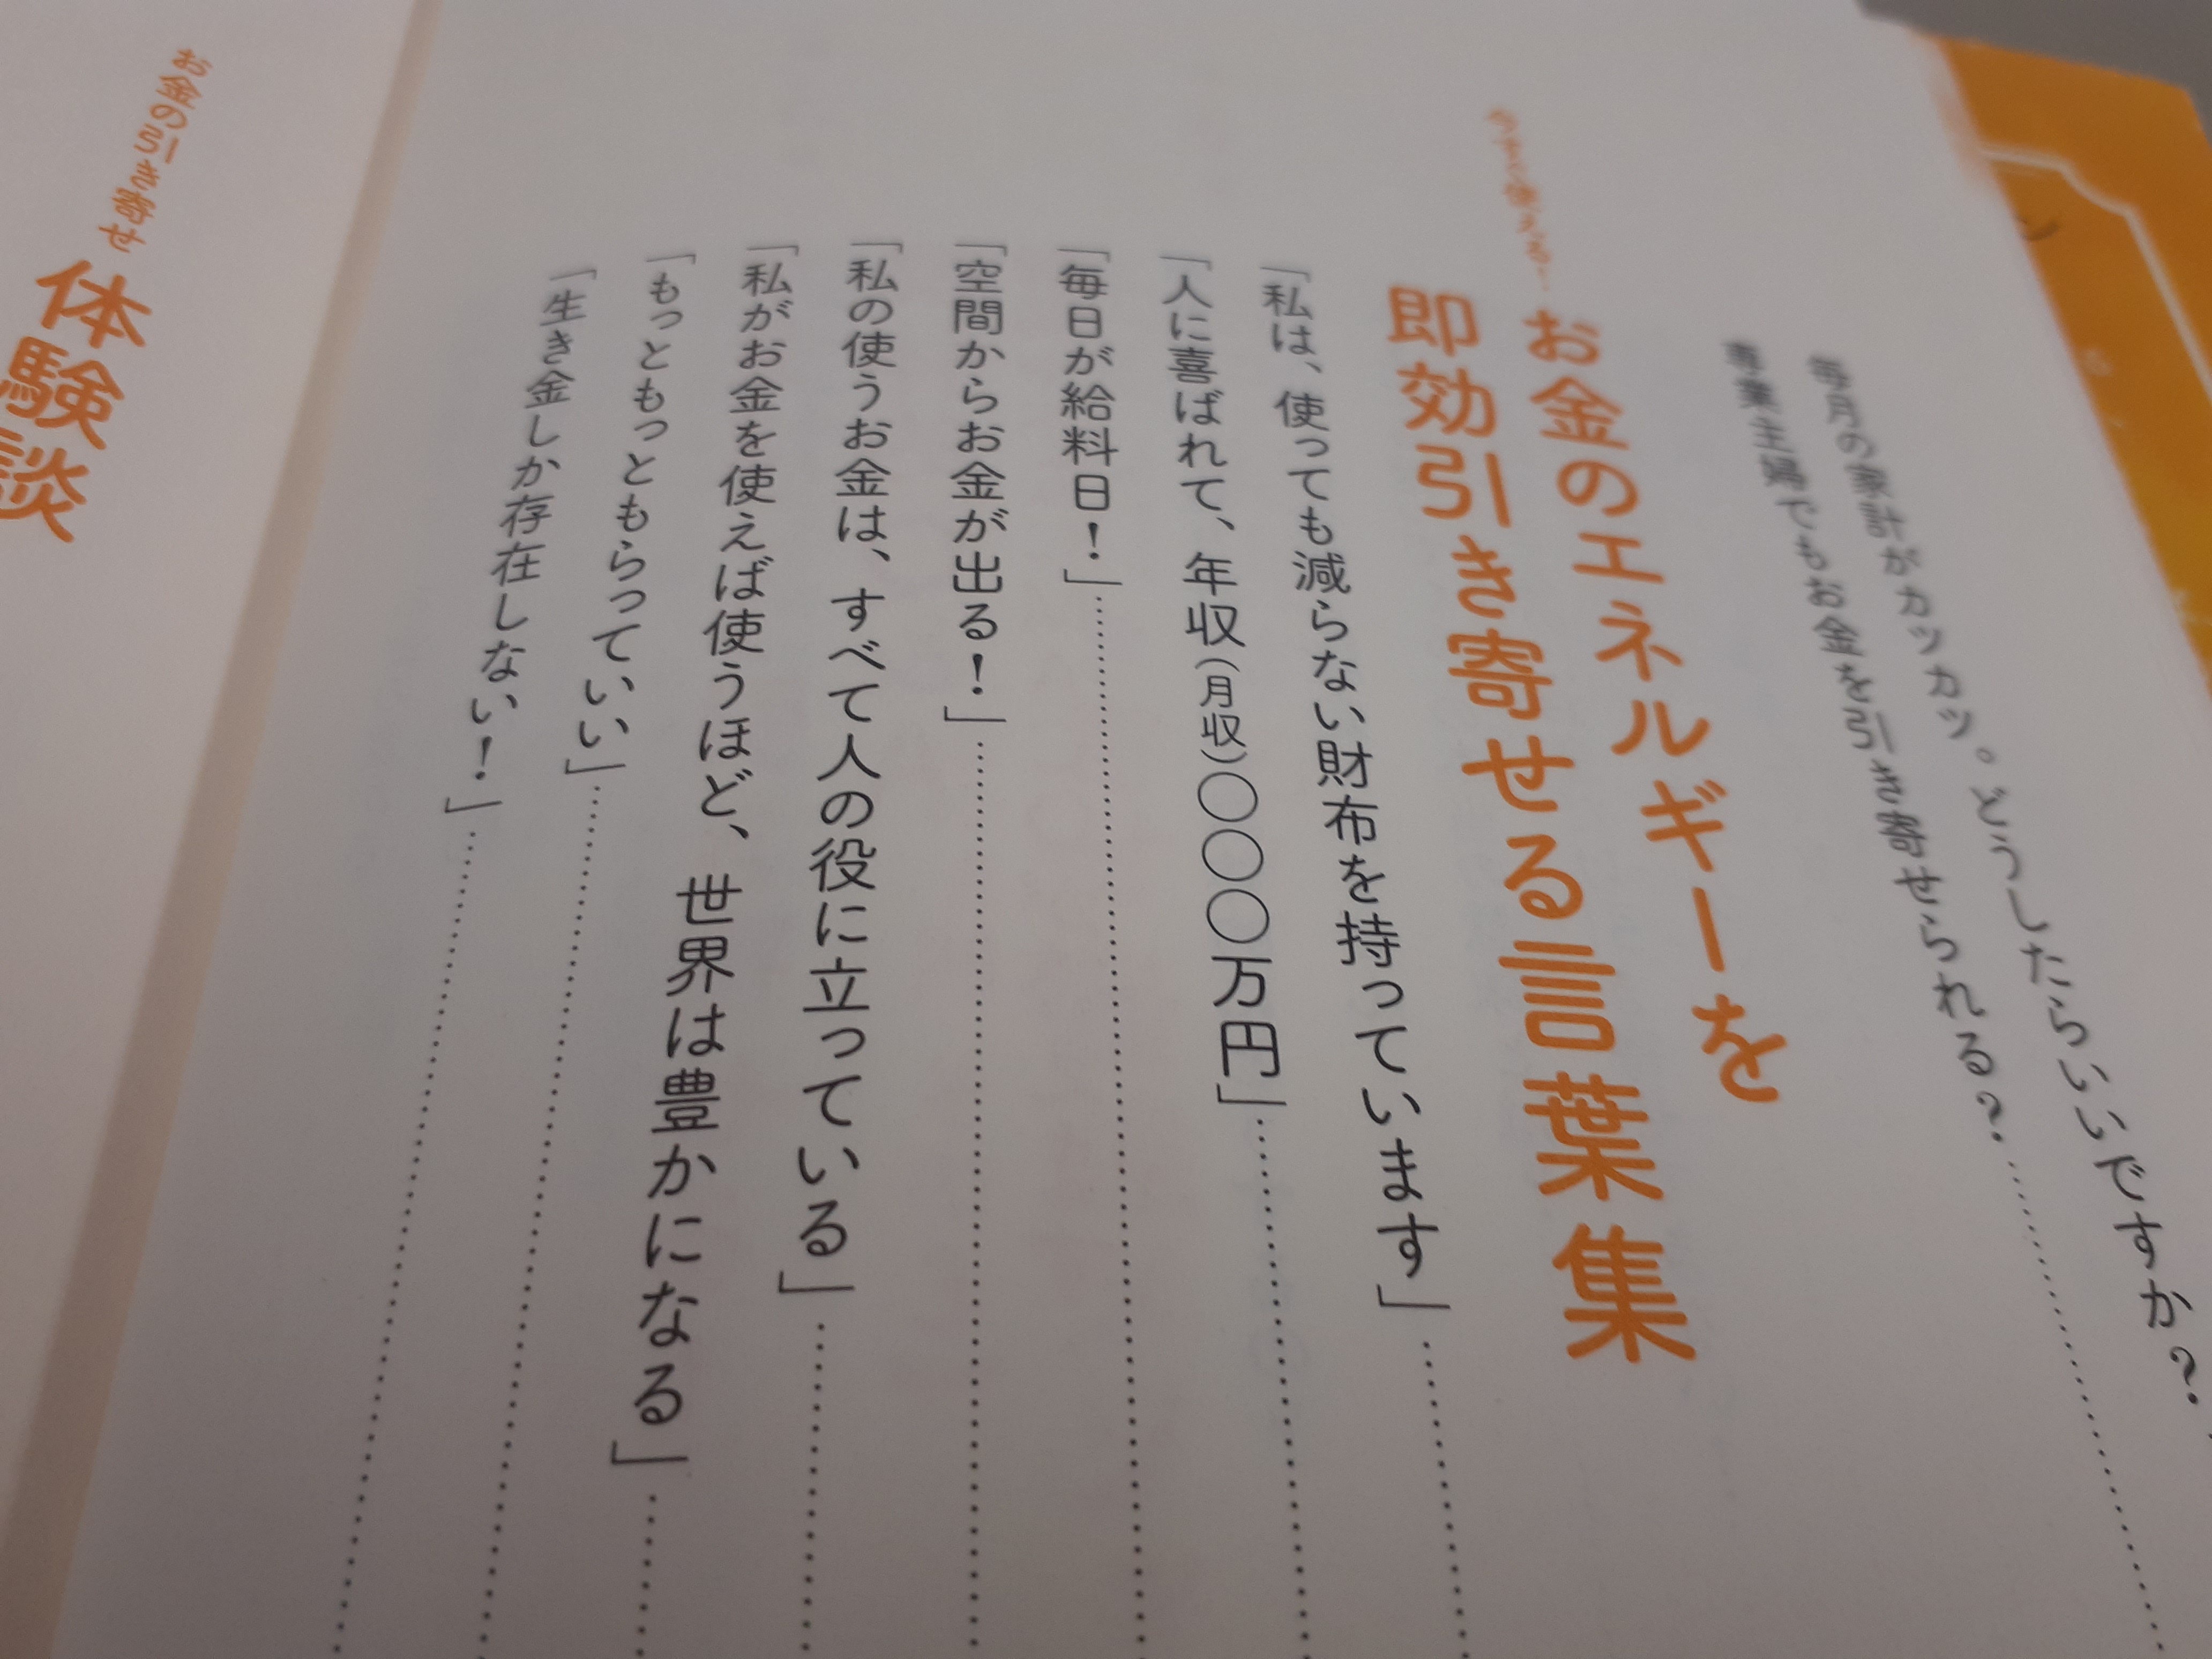 毎月の家計がカツカツ。どうしたらいいですか?
専業主婦でもお金を引き寄せられる?
今すぐ使える!
お金のエネルギーを
即効引き寄せる言葉集
「私は、使っても減らない財布を持っています」
「人に喜ばれて、年収(月収)〇〇〇万円」
「毎日が給料日!」
「空間からお金が出る!」
「私の使うお金は、すべて人の役に立っている」
「私がお金を使えば使うほど、世界は豊かになる」
「もっともっともらっていい」
「生き金しか存在しない!」
お金の引き寄せ
体験談